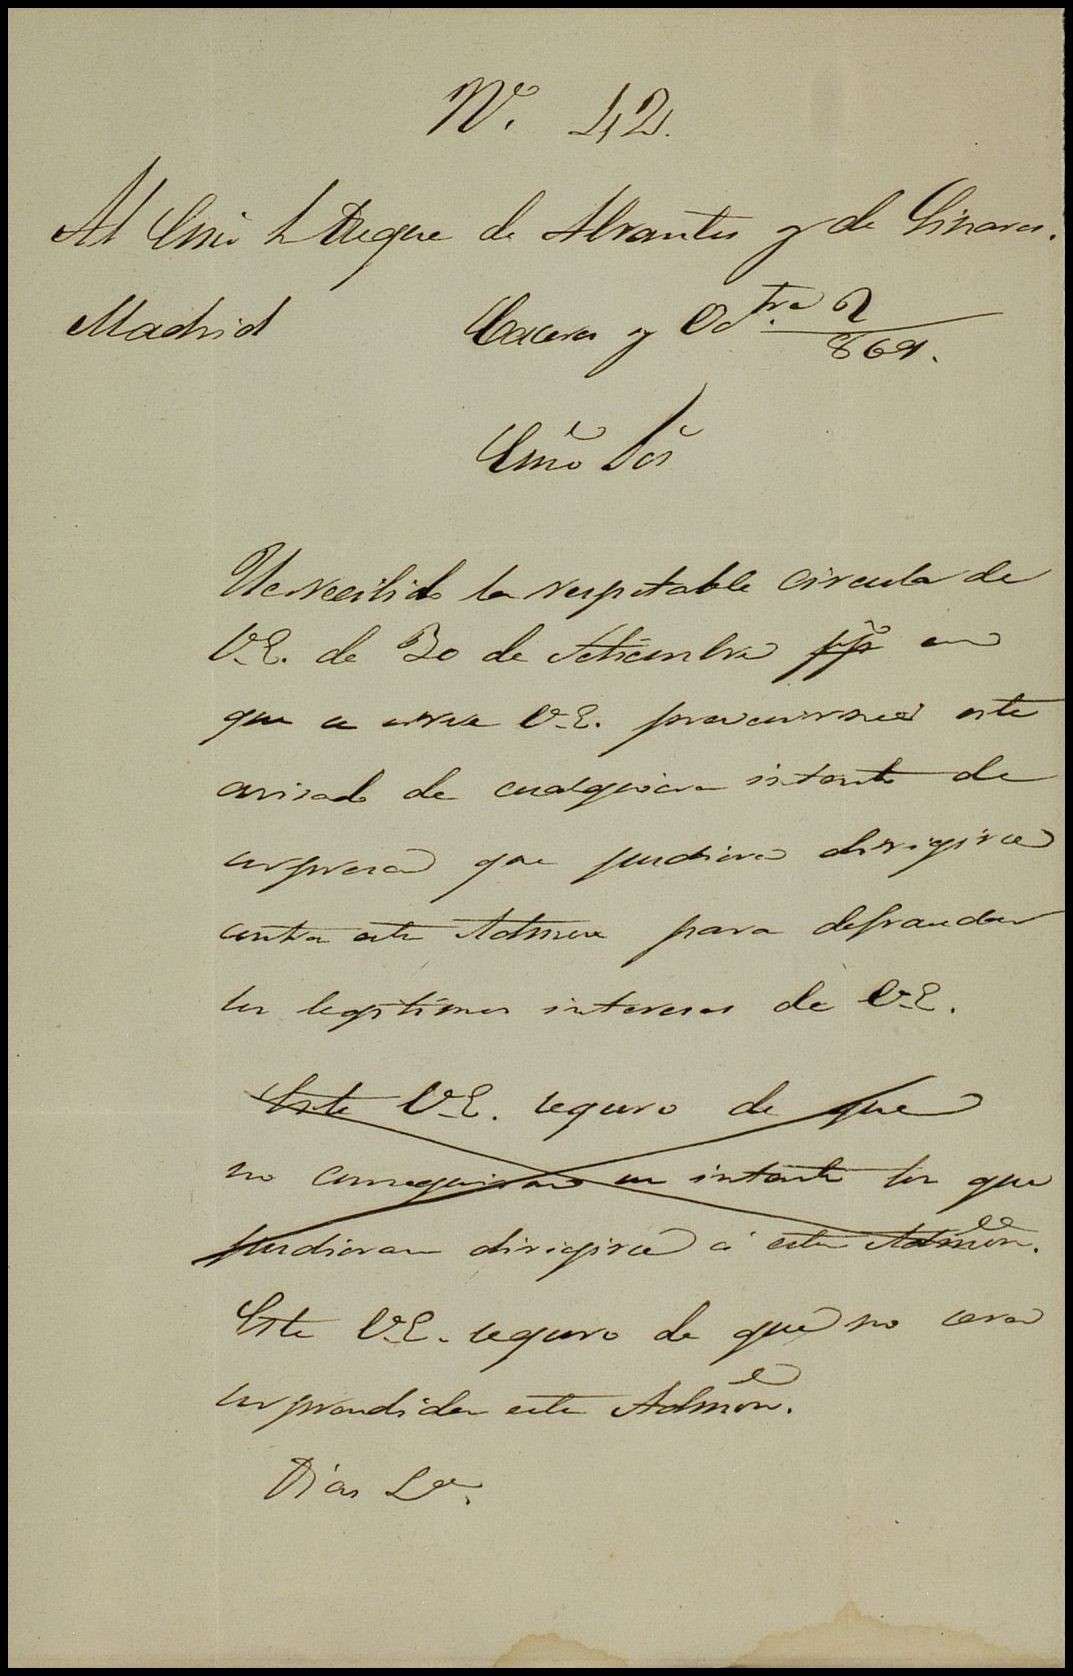 Nº. 42.
Al Emô Sr Duque de Abrantes y de Linares.
Madrid Caceres y Octre 2/869.
Emõ Sõr
He recibido la respetable circular de
V.E. de 30 de Setiembre ppº en
que se sirve V.E. prevenirme esté
avisado de cualquiera intento de
sorpresa que pudiera dirigirse
contra esta Admon para defraudar
los legitimos intereses de V.E.
Esté V.E. seguro de que
no conseguiran su intento los que
pudieran dirigirse á esta Admon.
Esté V.E. seguro de que no sera
sorprendida esta Admon.
Dios &a.